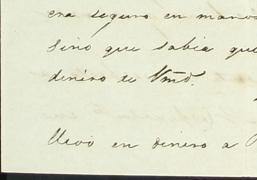 era seguro en manos
sino que sabia que
dinero de Vmd.
llevó en dinero a